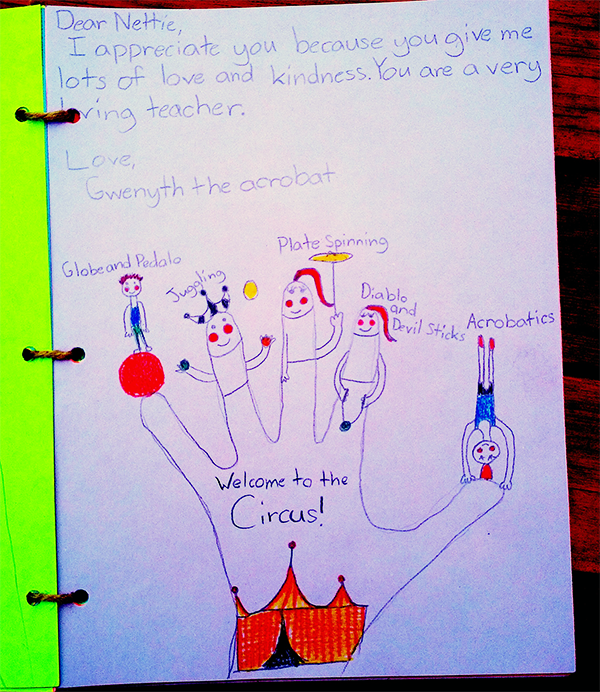 Dear Nettie,
I appreciate you because you give me
lots of love and kindness. You are a very
loving teacher.
Love,
Gwenyth the acrobat
Plate Spinning
Globe and Pedalo
Juggling
Diablo
and
Devil Sticks
Acrobatics
Welcome to the
Circus!